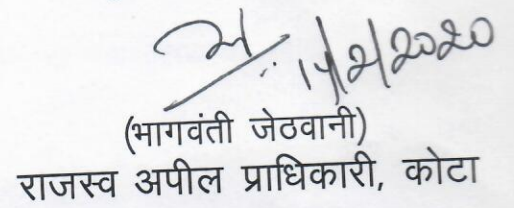 14/2/2020
(भागवंती जेठवानी)
राजस्व अपील प्राधिकारी, कोटा